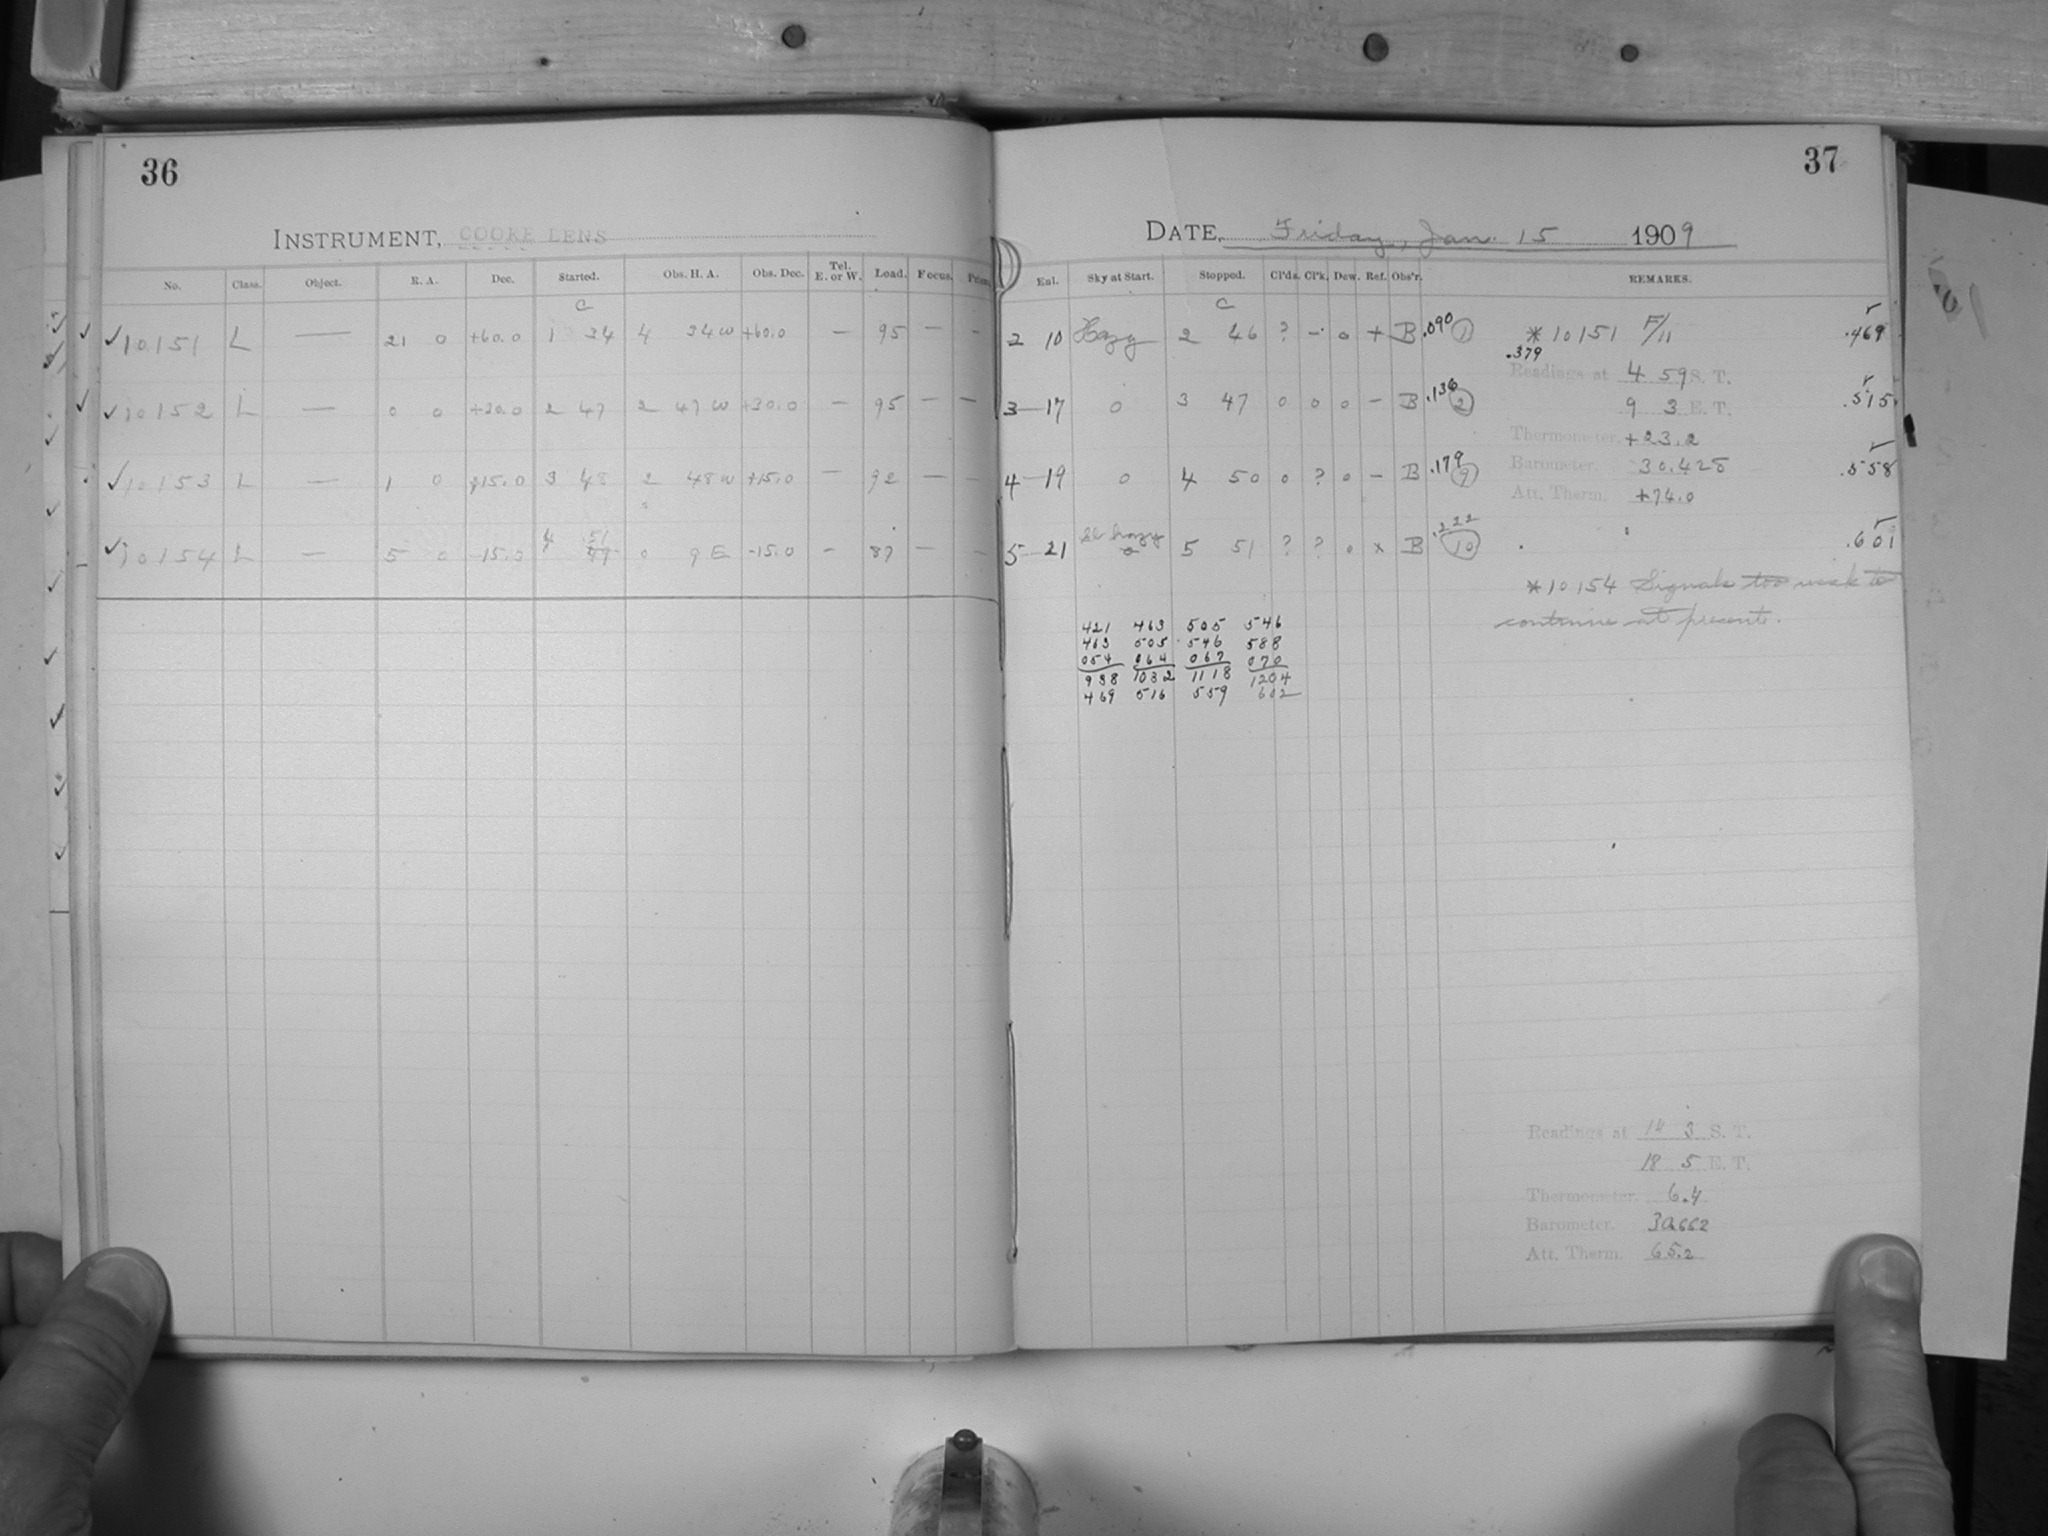 36
INSTRUMENT, COOKE LENS
No. Class. Object. R. A. Dec. Started. Obs. H. A. Obs. Dec. Tel. E. or W. Load. Focus. Prism.
C
✓10151 L — 21 0 +60.0 1 34 4 34 W +60.0 — 95 — —
✓10152 L — 0 0 +30.0 2 47 2 47 W +30.0 — 95 — —
✓10153 L — 1 0 +15.0 3 48 2 48 W +15.0 — 92 — —
✓10154 L — 5 0 -15.0 4 51 0 9 E -15.0 — 87 — —
37
DATE, Friday, Jan. 15 1909
Eul. Sky at Start. Stopped. Cl'ds. Cl'k. Dew. Ref. Obs'r. REMARKS.
C
2 10 Hazy 2 46 ? — 0 + B .090 1 * 10151 F/11 .469
.379
Readings at 4 59 S. T.
3—17 0 3 47 0 0 0 — B .136 2 9 3 E. T. .515
Thermometer. +23.2
4—19 0 4 50 0 ? 0 — B .179 9 Barometer. 30.428 .558
Att. Therm. +74.0
5—21 Sl. hazy 5 51 ? ? 0 x B .222 10 .601
*10154 Signals too weak to
continue at present.
421 463 505 546
463 505 546 588
054 064 067 070
938 1032 1118 1204
469 516 559 602
Readings at 14 3 S. T.
18 5 E. T.
Thermometer. 6.4
Barometer. 30.662
Att. Therm. 65.2